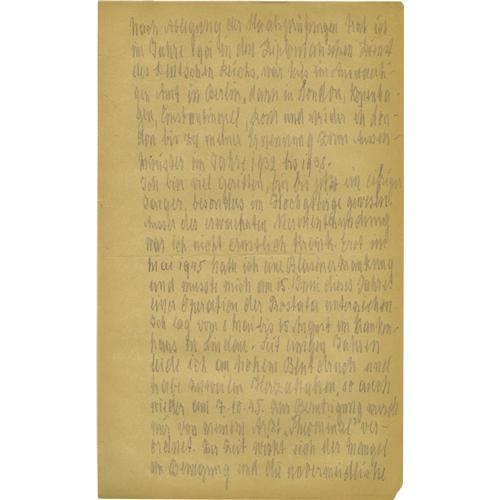 Nach Ablegung der Staatsprüfungen trat ich
im Jahre 1901 in den Diplomatischen Dienst
des Deutschen Reichs, war erst im Auswärti-
gen Amt in Berlin, dann in London, Kopenha-
gen, Constantinopel, Rom und wieder in Lon-
don bis zu meiner Ernennung zum Aussen-
minister im Jahre 1932 bis 1938.
Ich bin viel geritten, bin bis jetzt ein eifriger
Jäger, besonders im Hochgebirge gewesen.
Ausser der erwähnten
war ich nicht ernstlich krank. Erst im
Mai 1945 hatte ich eine Blasenerkrankung
und musste mich am 15 Juni dieses Jahres
einer Operation der Prostata unterziehen.
Ich lag vom Mai bis 15 August im Kranken-
haus in Lindau. Seit einigen Jahren
leide ich an hohem Blutdruck und
habe zuweilen so auch
wieder am 7.10.45. Zur Beruhigung wurde
mir von meinem Arzt "Theominal" ver-
ordnet. Zur Zeit wirkt sich der Mangel
an Bewegung und die unvermeidliche